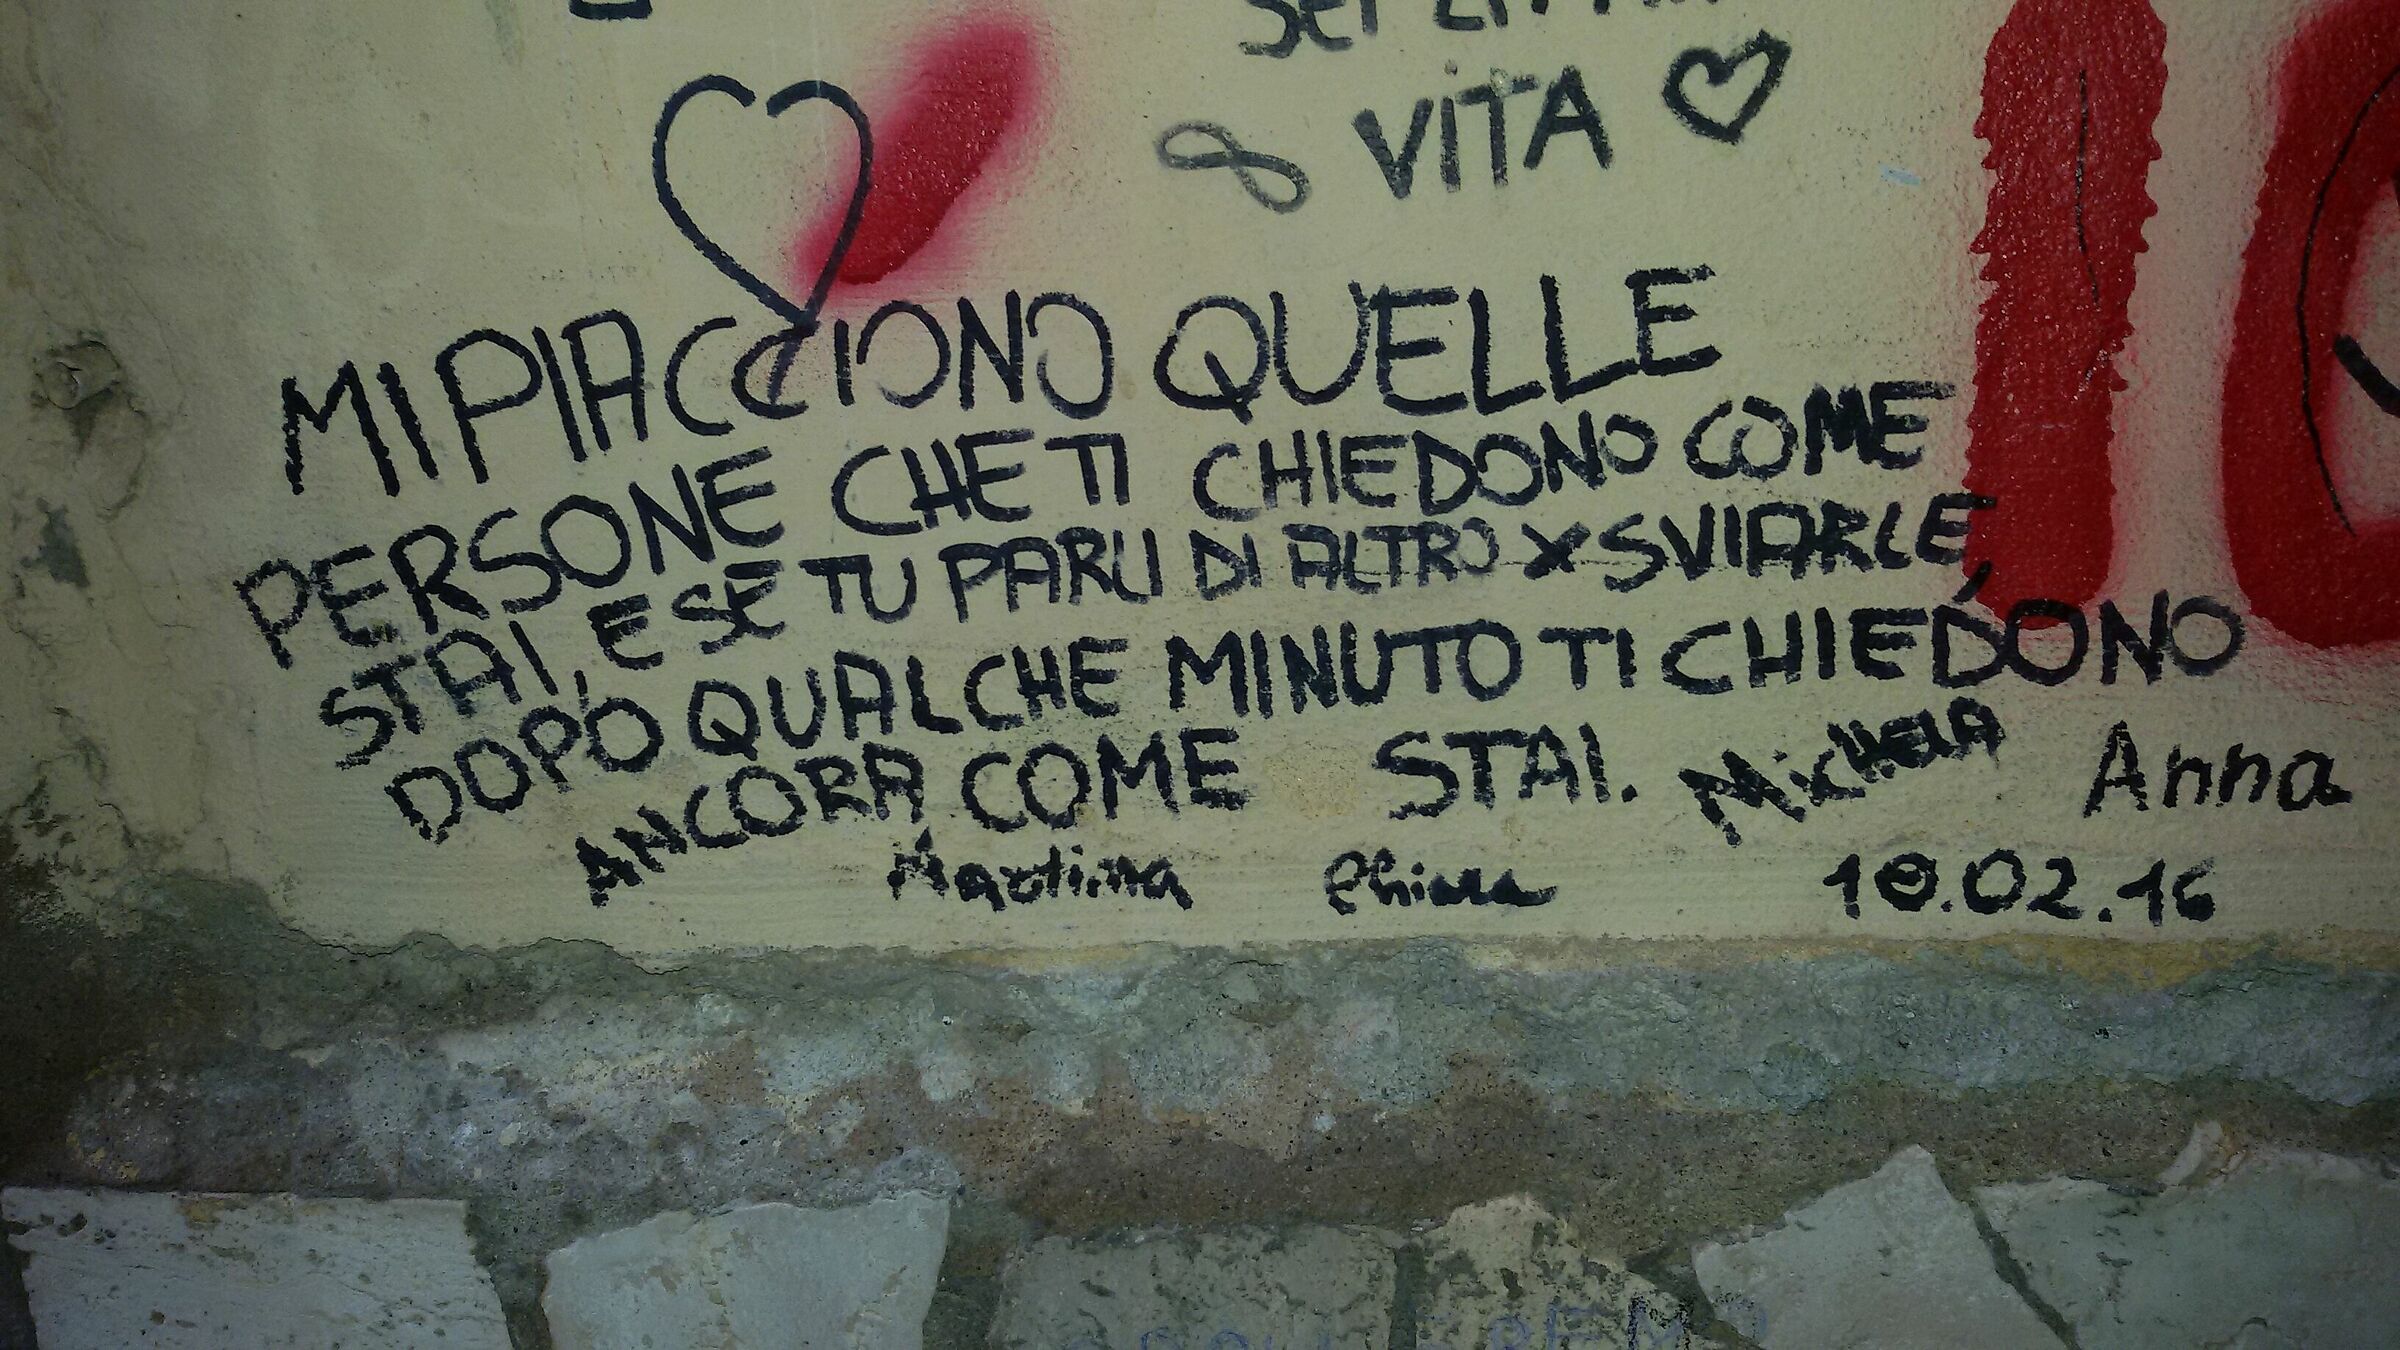 SEI
VITA
MI PIACCIONO QUELLE
PERSONE CHE TI CHIEDONO COME
STAI, E SE TU PARLI DI ALTRO X SVIARLE,
DOPO QUALCHE MINUTO TI CHIEDONO
ANCORA COME STAI.
Michela Anna
Martina Chiara 10.02.16